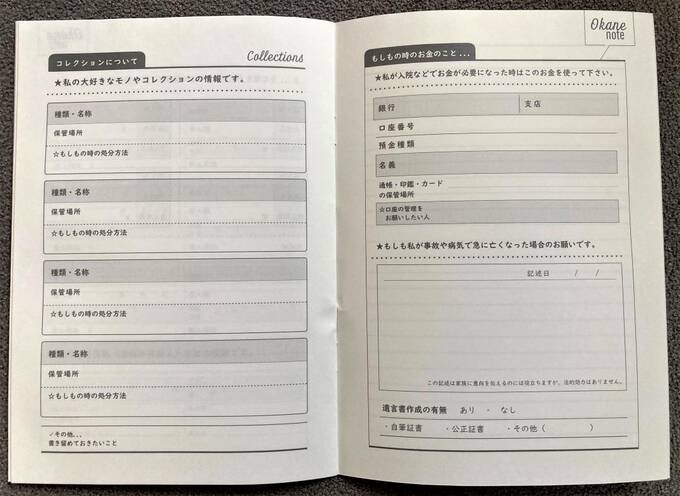 コレクションについて
Collections
★私の大好きなモノやコレクションの情報です。
種類・名称
保管場所
☆もしもの時の処分方法
種類・名称
保管場所
☆もしもの時の処分方法
種類・名称
保管場所
☆もしもの時の処分方法
種類・名称
保管場所
☆もしもの時の処分方法
✓その他...
書き留めておきたいこと
Okane
note
もしもの時のお金のこと...
★私が入院などでお金が必要になった時はこのお金を使って下さい。
銀行 支店
口座番号
預金種類
名義
通帳・印鑑・カード
の保管場所
☆口座の管理を
お願いしたい人
★もしも私が事故や病気で急に亡くなった場合のお願いです。
記述日 / /
この記述は家族に意向を伝えるのには役立ちますが、法的効力はありません。
遺言書作成の有無 あり ・ なし
・自筆証書 ・公正証書 ・その他（ ）